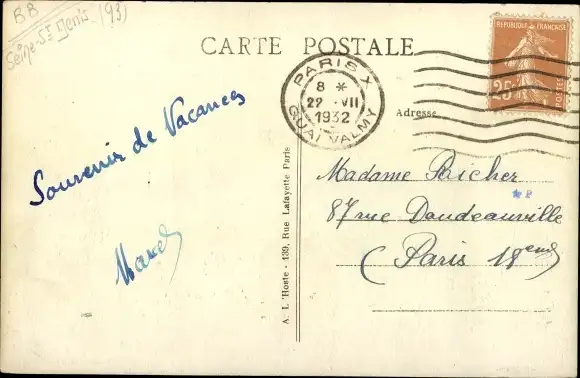 BB
Seine-St Denis (93)
CARTE POSTALE
REPUBLIQUE FRANÇAISE
25c
POSTES
PARIS X
8 *
22 · VII
1932
QUAI VALMY
Adresse
Souvenir de Vacances
Marcel
Madame Richer
87 rue Doudeauville
(Paris 18eme)
A. L'Hoste - 139, Rue Lafayette Paris